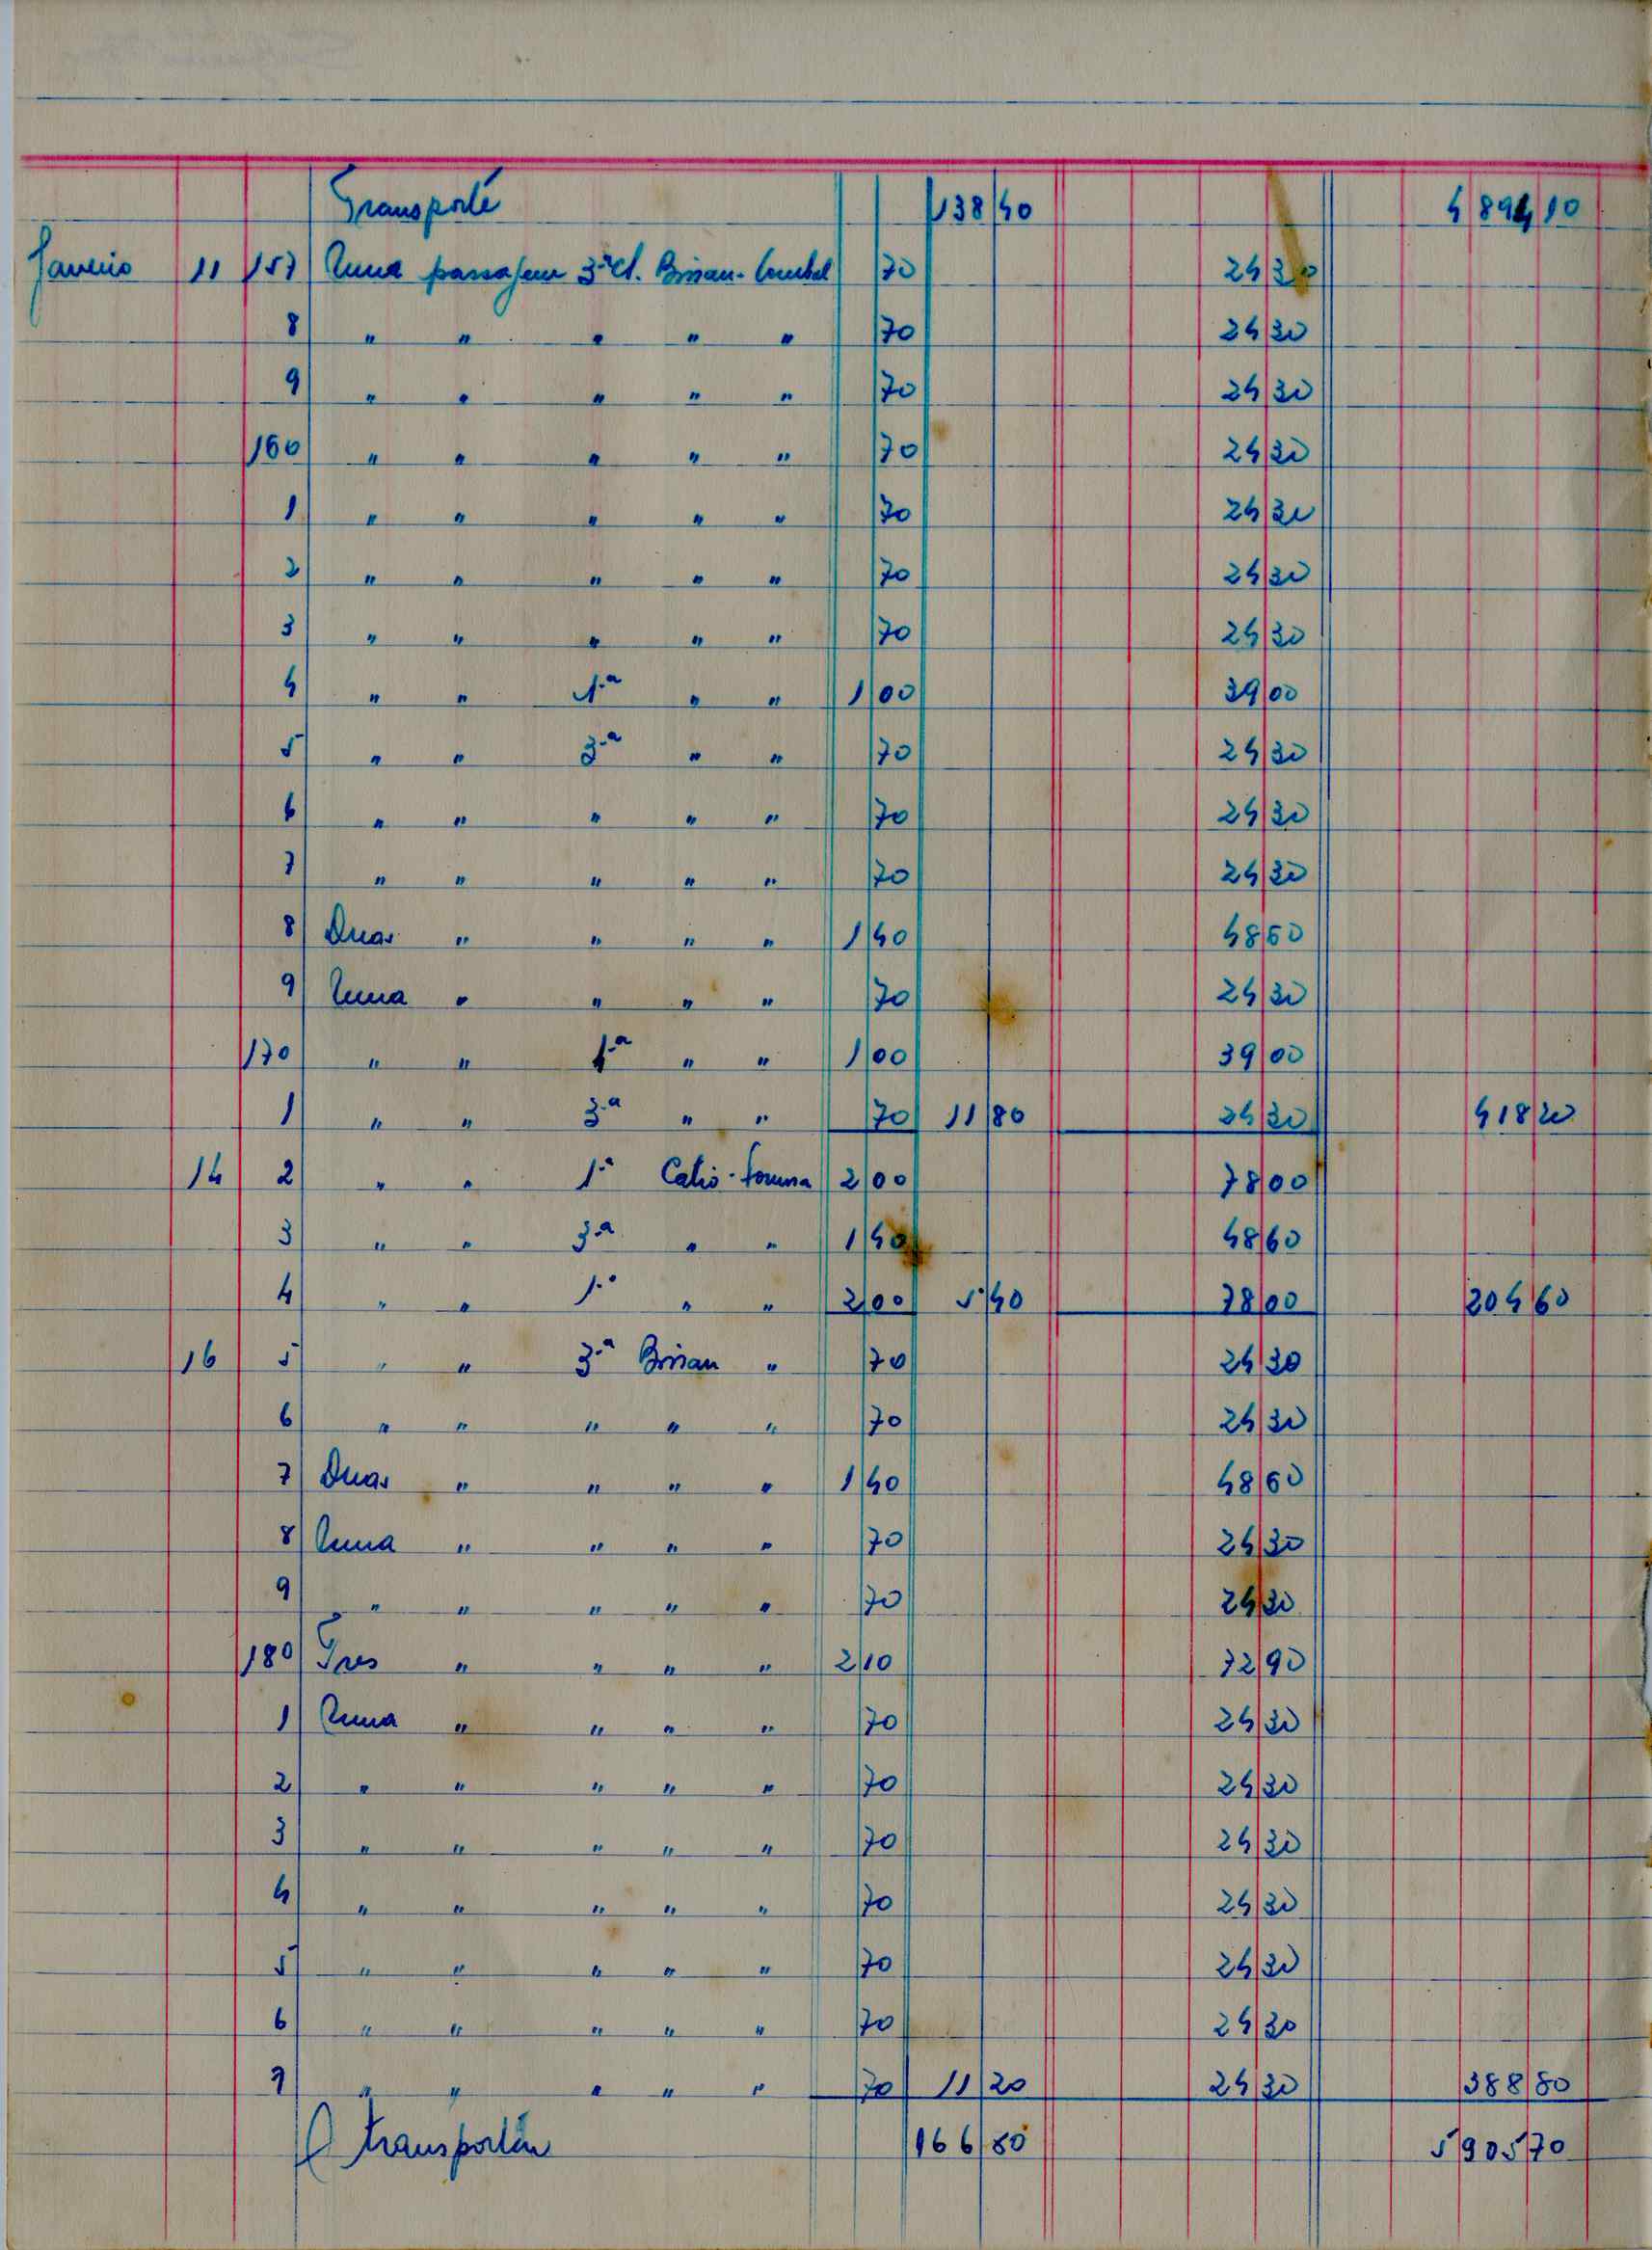 Transporte 138 40 4 894 10
Janeiro 11 157 Uma passagem 3ª cl. Bissau - 70 24 30
8 " " " " " 70 24 30
9 " " " " " 70 24 30
160 " " " " " 70 24 30
1 " " " " " 70 24 30
2 " " " " " 70 24 30
3 " " " " " 70 24 30
4 " " 1.ª " " 1 00 39 00
5 " " 3.ª " " 70 24 30
6 " " " " " 70 24 30
7 " " " " " 70 24 30
8 Duas " " " " 1 40 48 60
9 Uma " " " " 70 24 30
170 " " 1.ª " " 1 00 39 00
1 " " 3.ª " " 70 11 80 24 30 418 20
14 2 " " 1ª Catió - 2 00 78 00
3 " " 3.ª " " 1 40 48 60
4 " " 1.ª " " 2 00 5 40 78 00 204 60
16 5 " " 3.ª Bissau " 70 24 30
6 " " " " " 70 24 30
7 Duas " " " " 1 40 48 60
8 Uma " " " " 70 24 30
9 " " " " " 70 24 30
180 Tres " " " " 2 10 72 90
1 Uma " " " " 70 24 30
2 " " " " " 70 24 30
3 " " " " " 70 24 30
4 " " " " " 70 24 30
5 " " " " " 70 24 30
6 " " " " " 70 24 30
7 " " " " " 70 11 20 24 30 388 80
A transportar 166 80 5 905 70